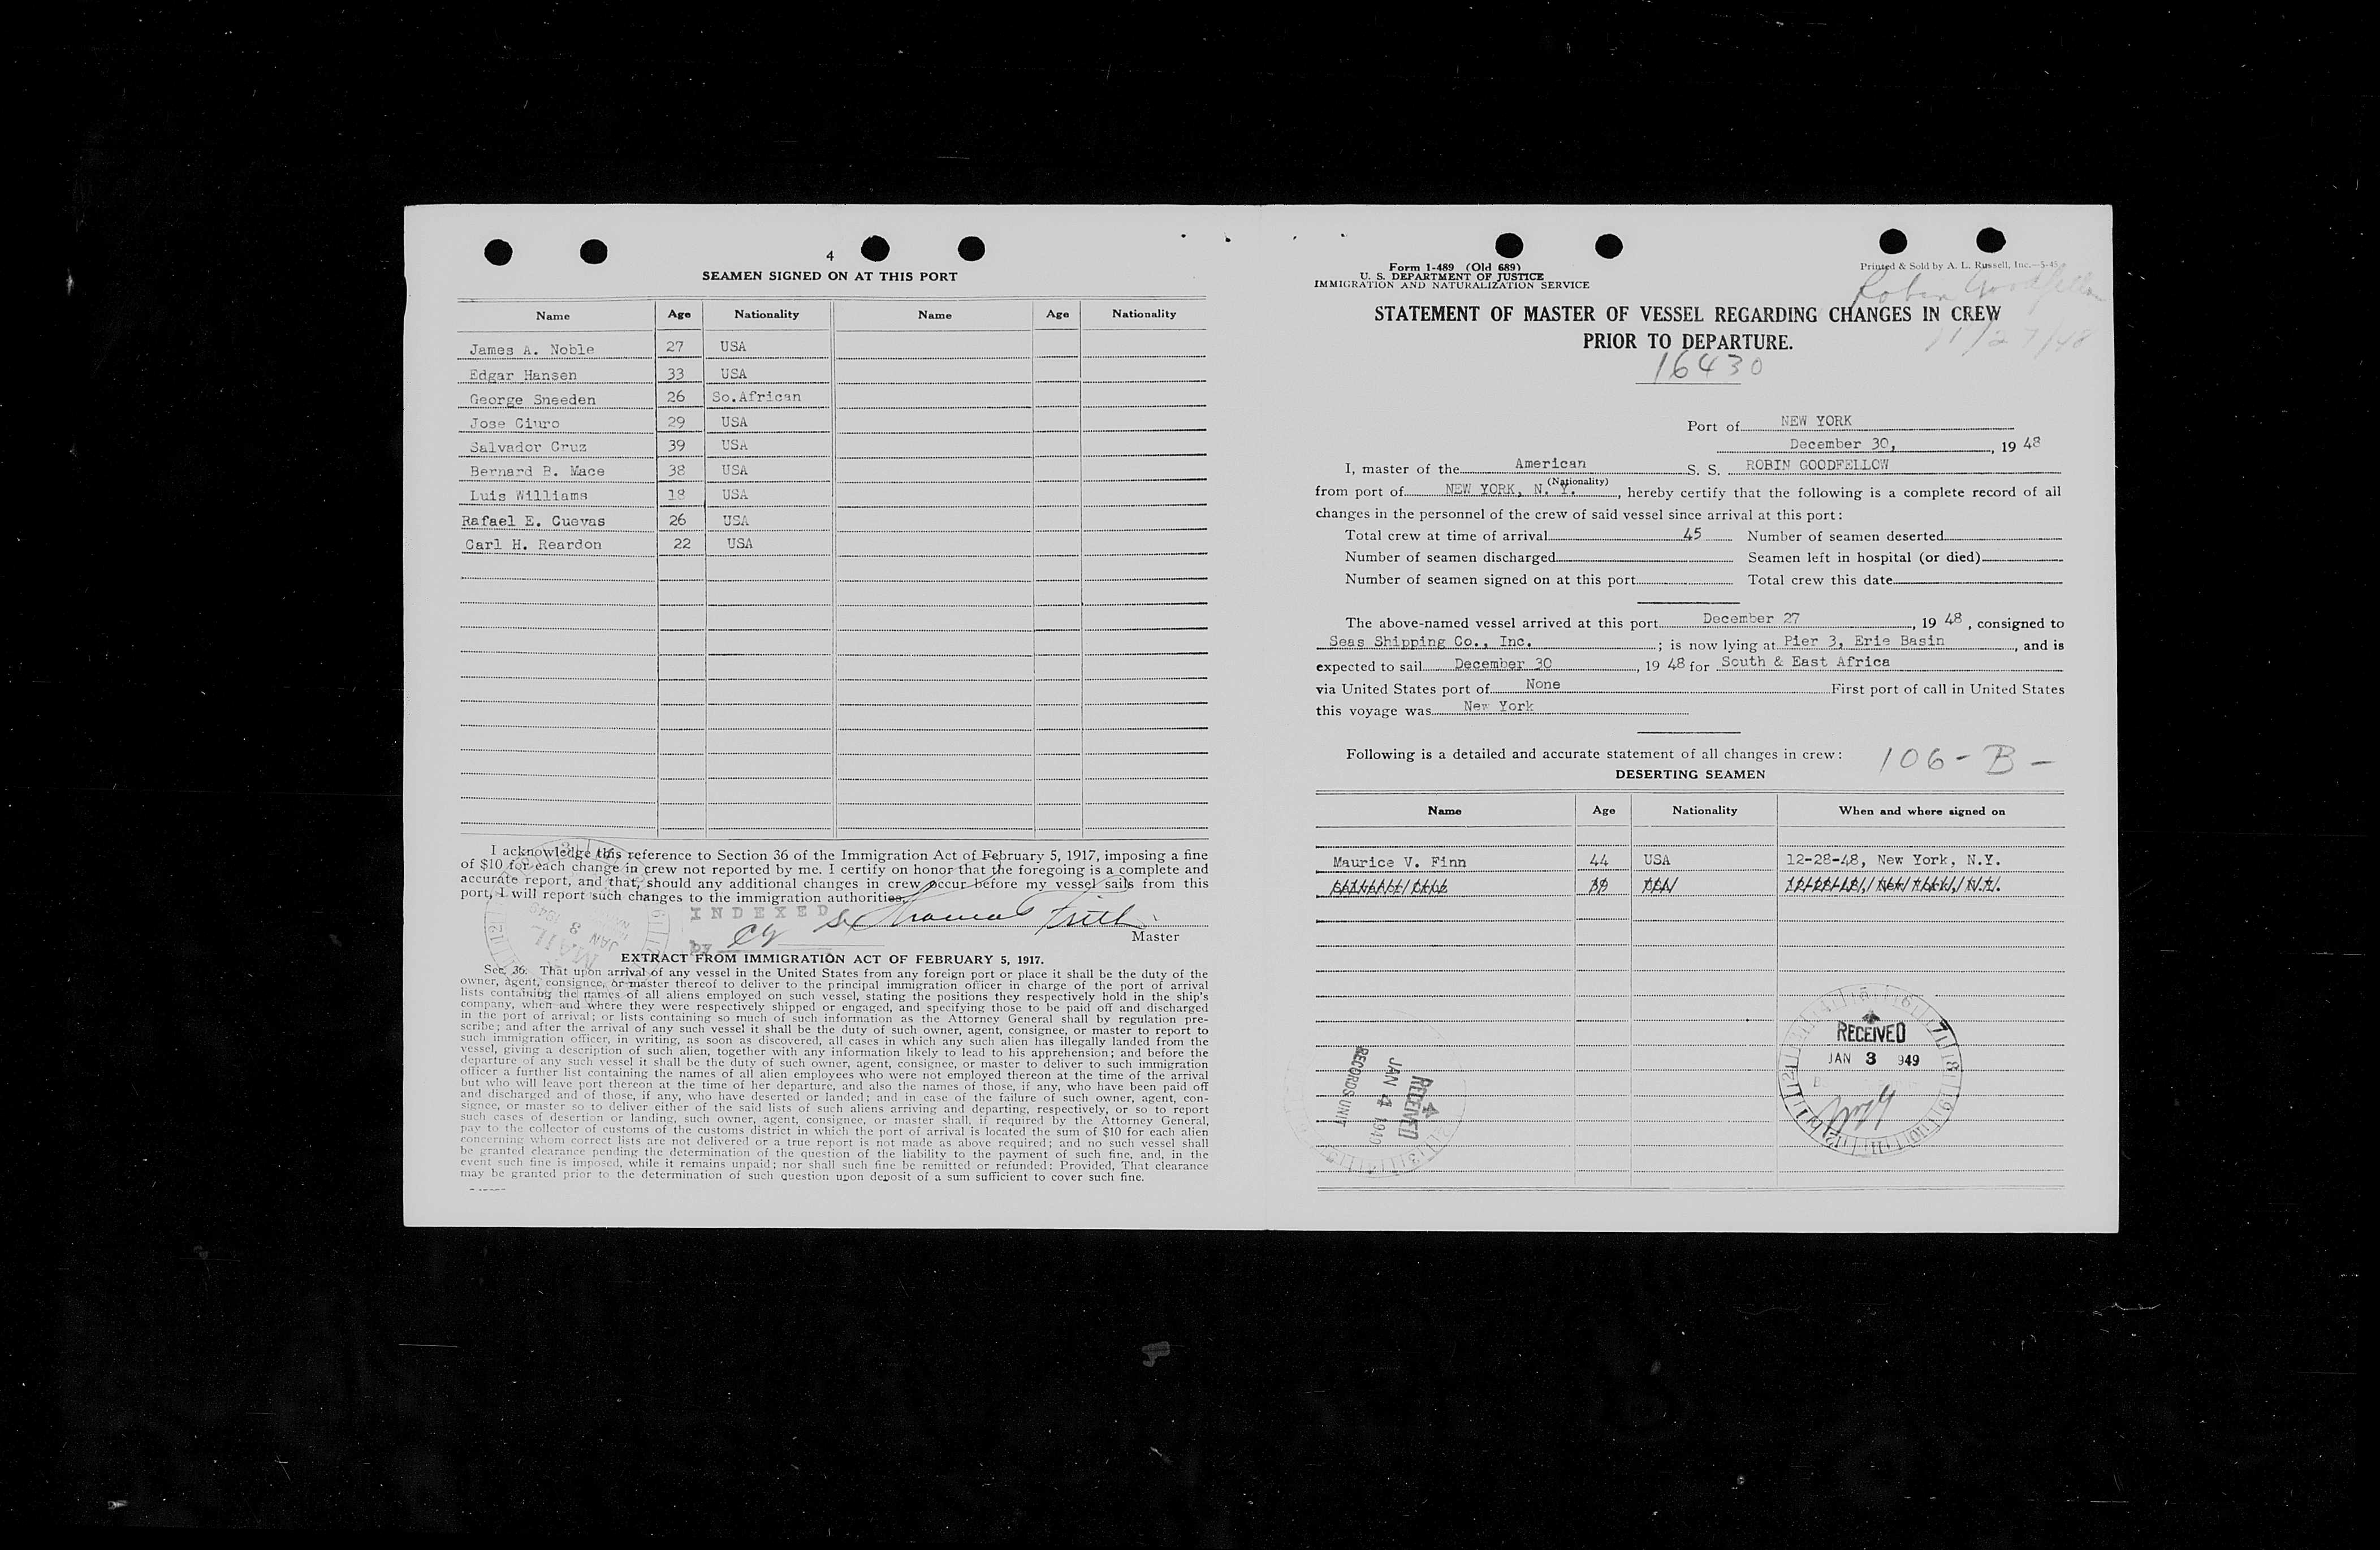 4
SEAMEN SIGNED ON AT THIS PORT
Name Age Nationality Name Age Nationality
James A. Noble 27 USA
Edgar Hansen 33 USA
George Sneeden 26 So.African
Jose Ciuro 29 USA
Salvador Cruz 39 USA
Bernard B. Mace 38 USA
Luis Williams 18 USA
Rafael E. Cuevas 26 USA
Carl H. Reardon 22 USA
I acknowledge this reference to Section 36 of the Immigration Act of February 5, 1917, imposing a fine
of $10 for each change in crew not reported by me. I certify on honor that the foregoing is a complete and
accurate report, and that, should any additional changes in crew occur before my vessel sails from this
port, I will report such changes to the immigration authorities.
INDEXED
by
Master
MAIL
JAN 3 1949
EXTRACT FROM IMMIGRATION ACT OF FEBRUARY 5, 1917.
Sec. 36. That upon arrival of any vessel in the United States from any foreign port or place it shall be the duty of the
owner, agent, consignee, or master thereof to deliver to the principal immigration officer in charge of the port of arrival
lists containing the names of all aliens employed on such vessel, stating the positions they respectively hold in the ship's
company, when and where they were respectively shipped or engaged, and specifying those to be paid off and discharged
in the port of arrival; or lists containing so much of such information as the Attorney General shall by regulation pre-
scribe; and after the arrival of any such vessel it shall be the duty of such owner, agent, consignee, or master to report to
such immigration officer, in writing, as soon as discovered, all cases in which any such alien has illegally landed from the
vessel, giving a description of such alien, together with any information likely to lead to his apprehension; and before the
departure of any such vessel it shall be the duty of such owner, agent, consignee, or master to deliver to such immigration
officer a further list containing the names of all alien employees who were not employed thereon at the time of the arrival
but who will leave port thereon at the time of her departure, and also the names of those, if any, who have been paid off
and discharged and of those, if any, who have deserted or landed; and in case of the failure of such owner, agent, con-
signee, or master so to deliver either of the said lists of such aliens arriving and departing, respectively, or so to report
such cases of desertion or landing, such owner, agent, consignee, or master shall, if required by the Attorney General,
pay to the collector of customs of the customs district in which the port of arrival is located the sum of $10 for each alien
concerning whom correct lists are not delivered or a true report is not made as above required; and no such vessel shall
be granted clearance pending the determination of the question of the liability to the payment of such fine, and, in the
event such fine is imposed, while it remains unpaid; nor shall such fine be remitted or refunded: Provided, That clearance
may be granted prior to the determination of such question upon deposit of a sum sufficient to cover such fine.
Form 1-489 (Old 689)
U. S. DEPARTMENT OF JUSTICE
IMMIGRATION AND NATURALIZATION SERVICE
Printed & Sold by A. L. Russell, Inc.—5-45
Robin Goodfellow
11/27/48
STATEMENT OF MASTER OF VESSEL REGARDING CHANGES IN CREW
PRIOR TO DEPARTURE.
16430
Port of NEW YORK
December 30, , 19 48
I, master of the American S. S. ROBIN GOODFELLOW
(Nationality)
from port of NEW YORK, N. Y. , hereby certify that the following is a complete record of all
changes in the personnel of the crew of said vessel since arrival at this port:
Total crew at time of arrival 45 Number of seamen deserted
Number of seamen discharged Seamen left in hospital (or died)
Number of seamen signed on at this port Total crew this date
The above-named vessel arrived at this port December 27 , 19 48 , consigned to
Seas Shipping Co., Inc. ; is now lying at Pier 3, Erie Basin , and is
expected to sail December 30 , 19 48 for South & East Africa
via United States port of None First port of call in United States
this voyage was New York
Following is a detailed and accurate statement of all changes in crew:
106-B-
DESERTING SEAMEN
Name Age Nationality When and where signed on
Maurice V. Finn 44 USA 12-28-48, New York, N.Y.
RECEIVED
JAN 3 949
RECEIVED
JAN 4 1949
RECORDS UNIT